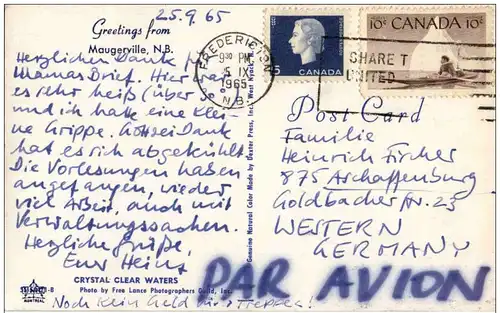 25.9.65
Greetings from
Maugerville, N.B.
Herzlichen Dank für
Mamas Brief. Hier war
es sehr heiß (über 30
und ich hatte eine Klei-
ne Grippe. Gottseidank
hat es sich abgekühlt.
Die Vorlesungen haben
angefangen, wieder
viel Arbeit, auch mit
Verwaltungssachen.
Herzliche Grüße,
Euer Heinz
CRYSTAL CLEAR WATERS
Photo by Free Lance Photographers Guild, Inc.
MONTREAL
Noch kein Geld
Genuine Natural Color Made by Dexter Press, Inc.
FREDERICTON
9 30 PM
5 IX
1965
N.B.
5
CANADA
10¢ CANADA 10¢
SHARE T
UNITED
Post Card
Familie
Heinrich Fircher
875 Aschaffenburg
Goldbacher Str. 25
WESTERN
GERMANY
PAR AVION